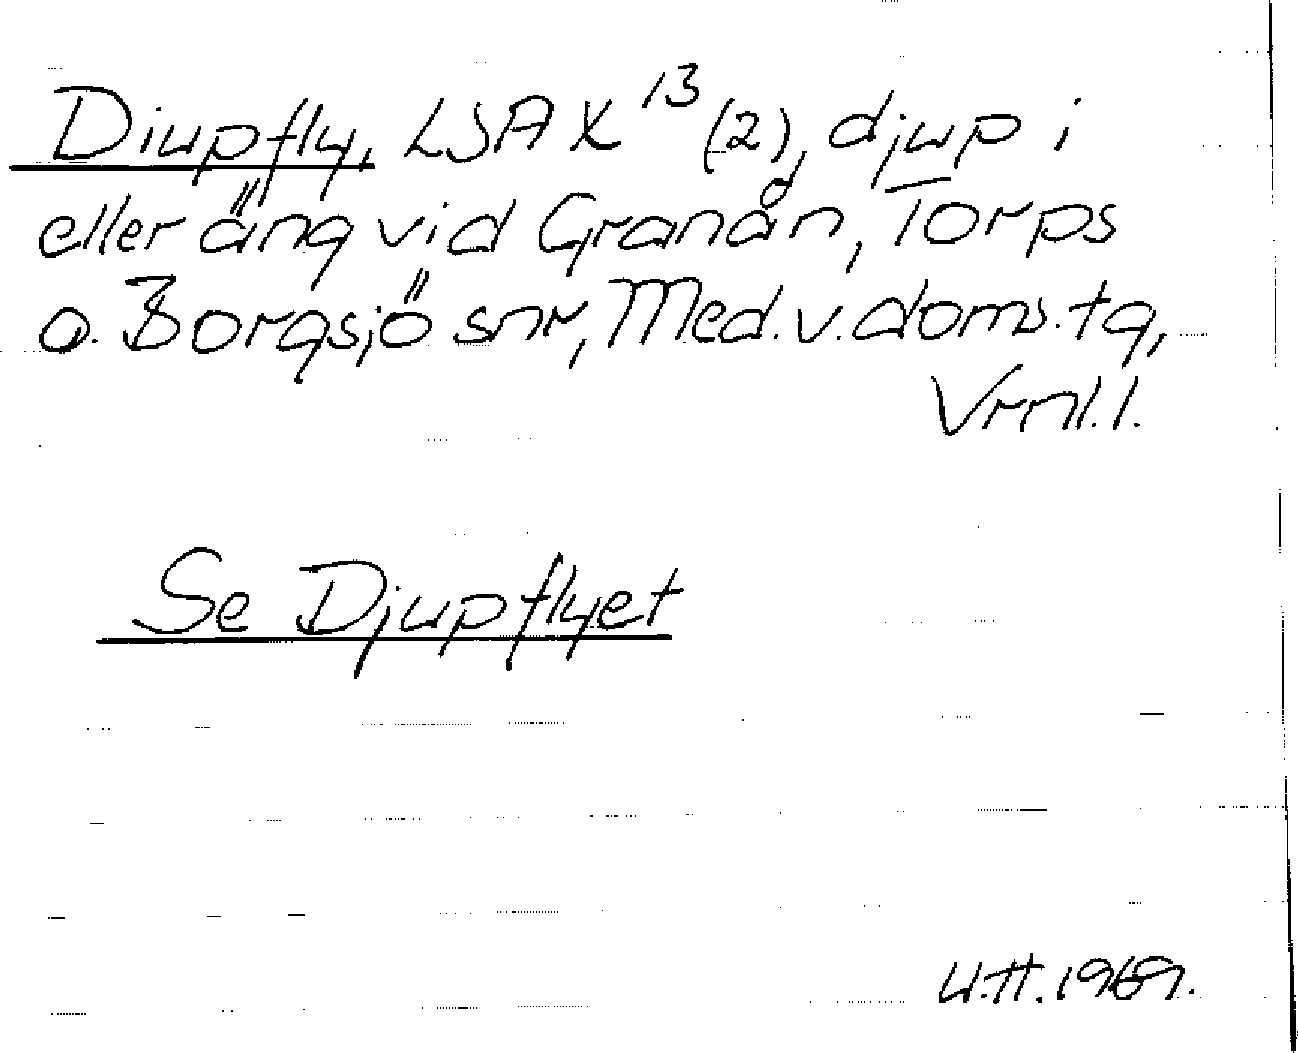 Diupfly, LSA X¹³ (2), djup i
eller äng vid Granån, Torps
o. Borgsjö snr, Med. v. doms. tg,
Vrnl. l.
Se Djupflyet
U.H. 1969.